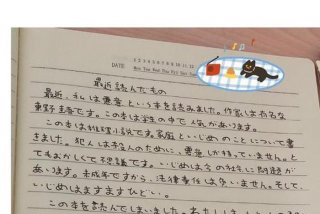 1 2 3 4 5 6 7 8 9 10 11 12
DATE
最近読んだもの
最近、私は悪意という本を読みました。作家は有名な
東野圭吾です。この本は学生の中で人気があります。
この本は推理小説です。家庭といじめのことについて書
きました。犯人は本人のために、悪意しか持っていません。と
てもおかしくて不思議です。いじめは今の社会に問題が
あります。未成年ですから、法律責任は多いません。そして、
いじめはますますひどい。
この本を読んでしまいました。